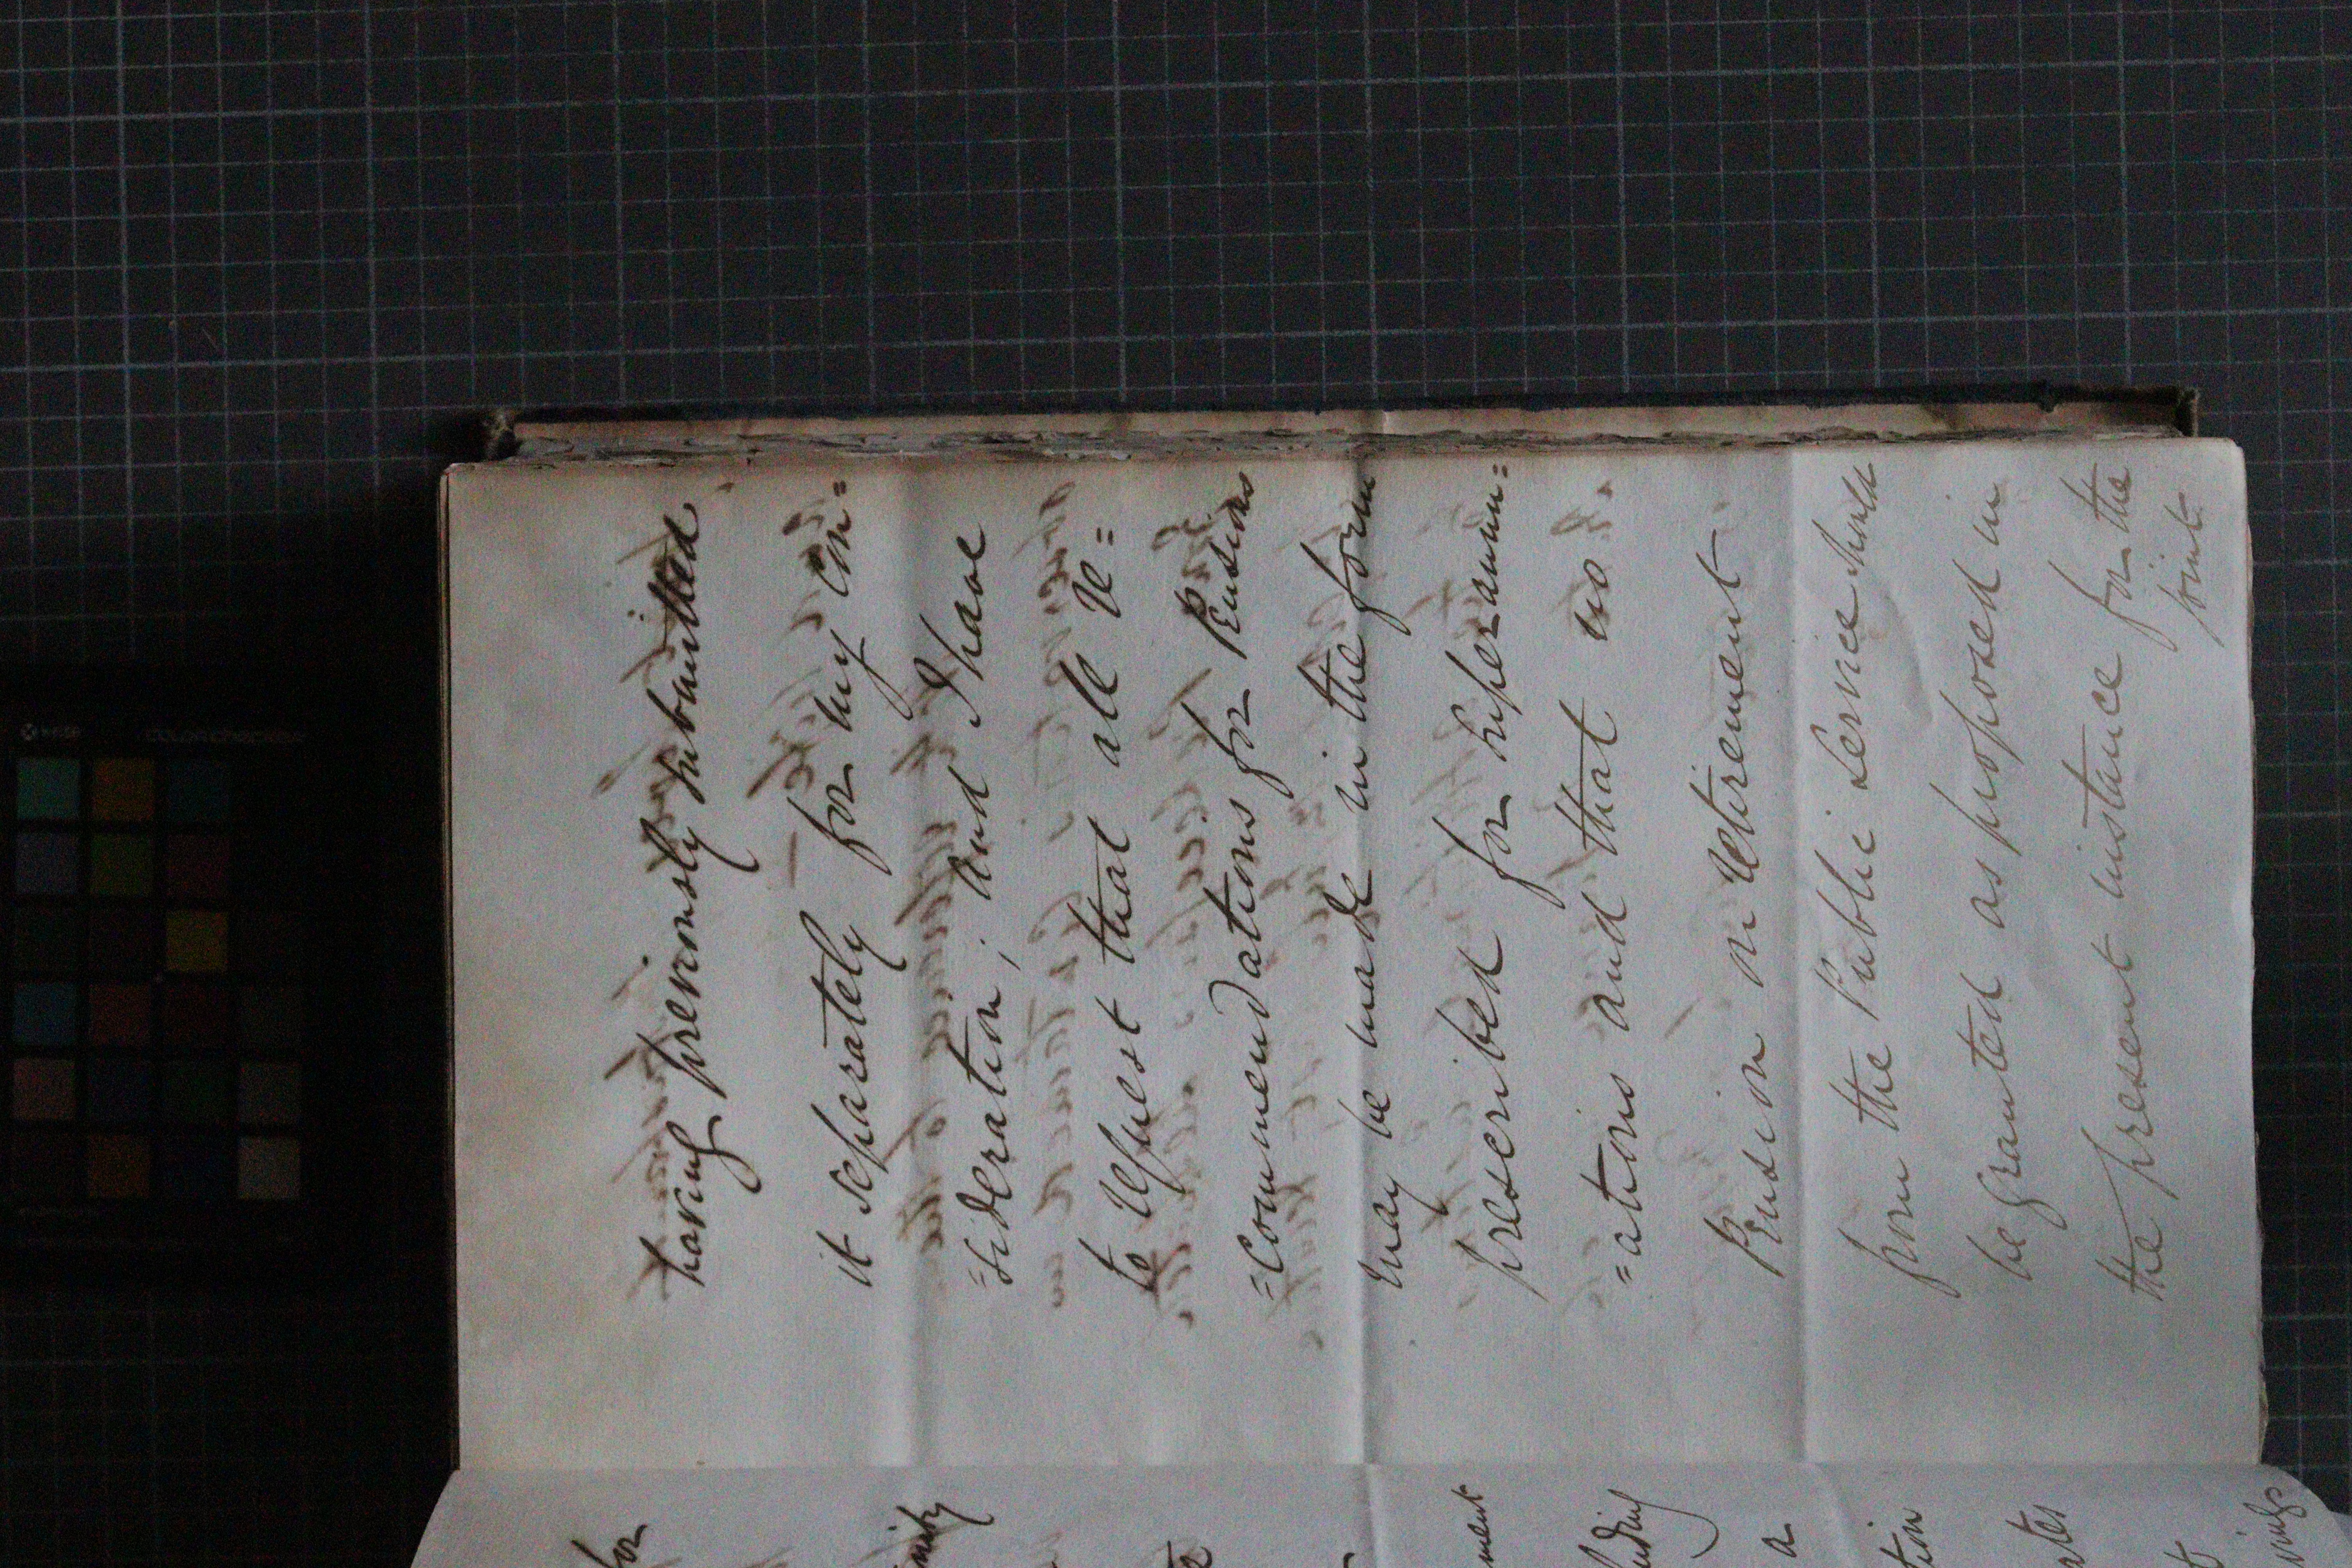 having previously submitted
it separately for my con=
=sideration; and I have
to request that all re=
=commendations for Pensions
may be made in the form
prescribed for superannu=
=ations and that no
Pension on retirement
from the Public Service should
be granted as proposed in
the present instance for the
joint
for
ment
a
x-rite
colorchecker